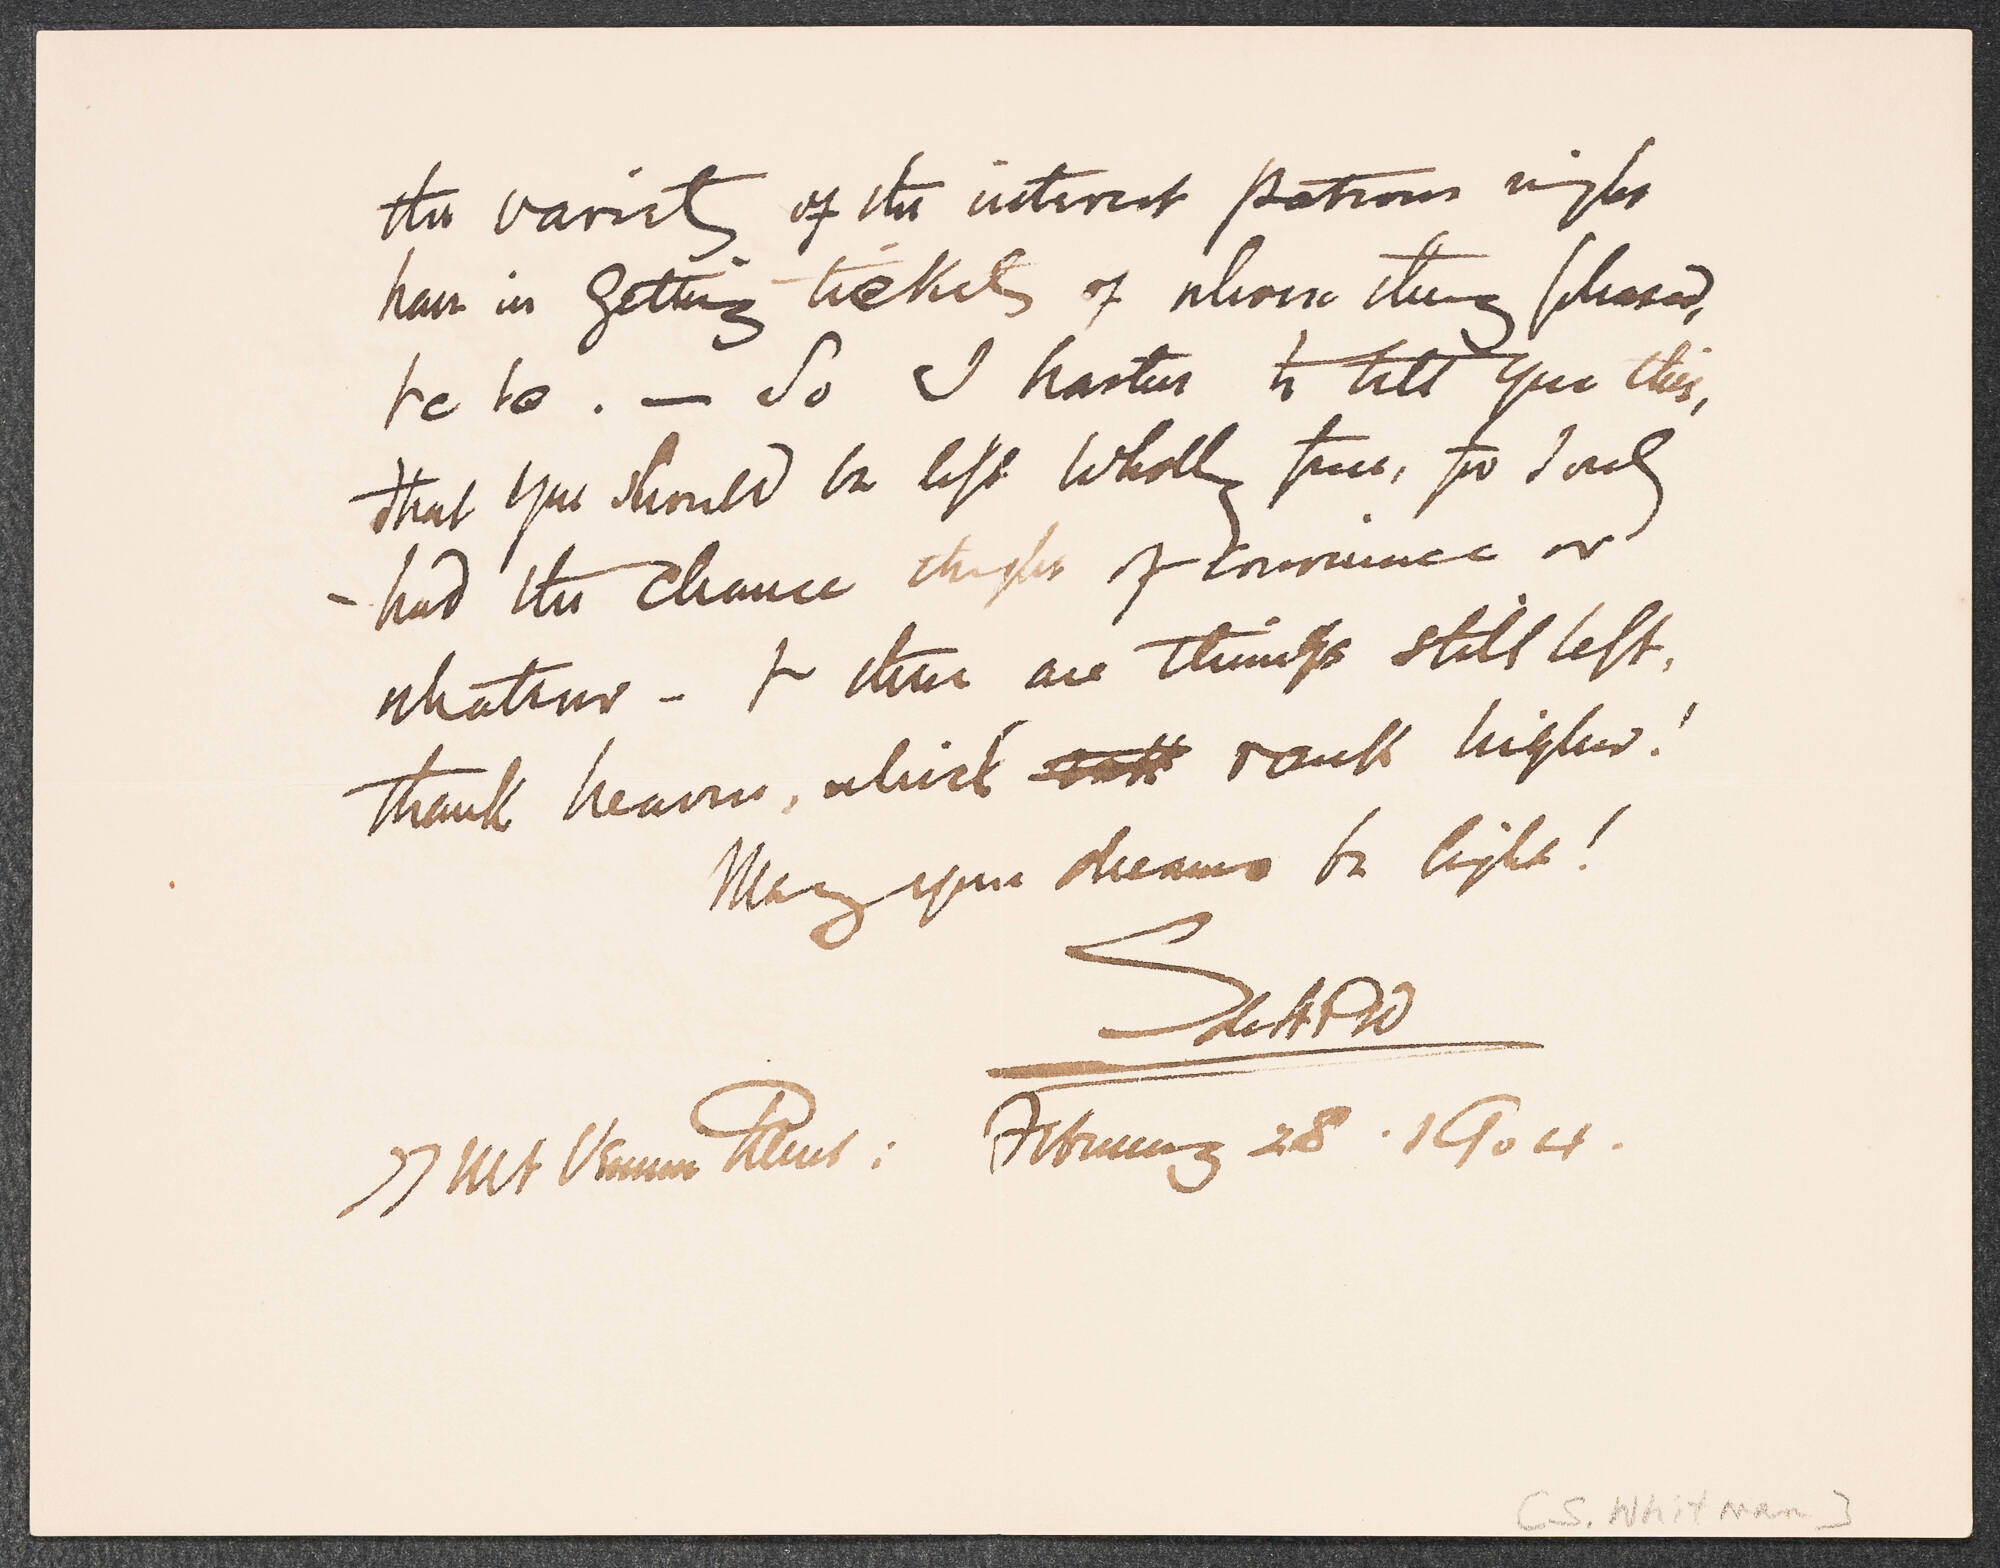 the variety of the interest patrons might
have in getting tickets of whom they pleased,
to be. — So I hasten to tell you this,
that you should be left wholly free, for I only
- had the chance thought of convenience or
whatever - & there are things still left,
thank heaven, which rank higher!
May your dreams be light!
77 Mt Vernon Street: February 28. 1904.
[S. Whitman]